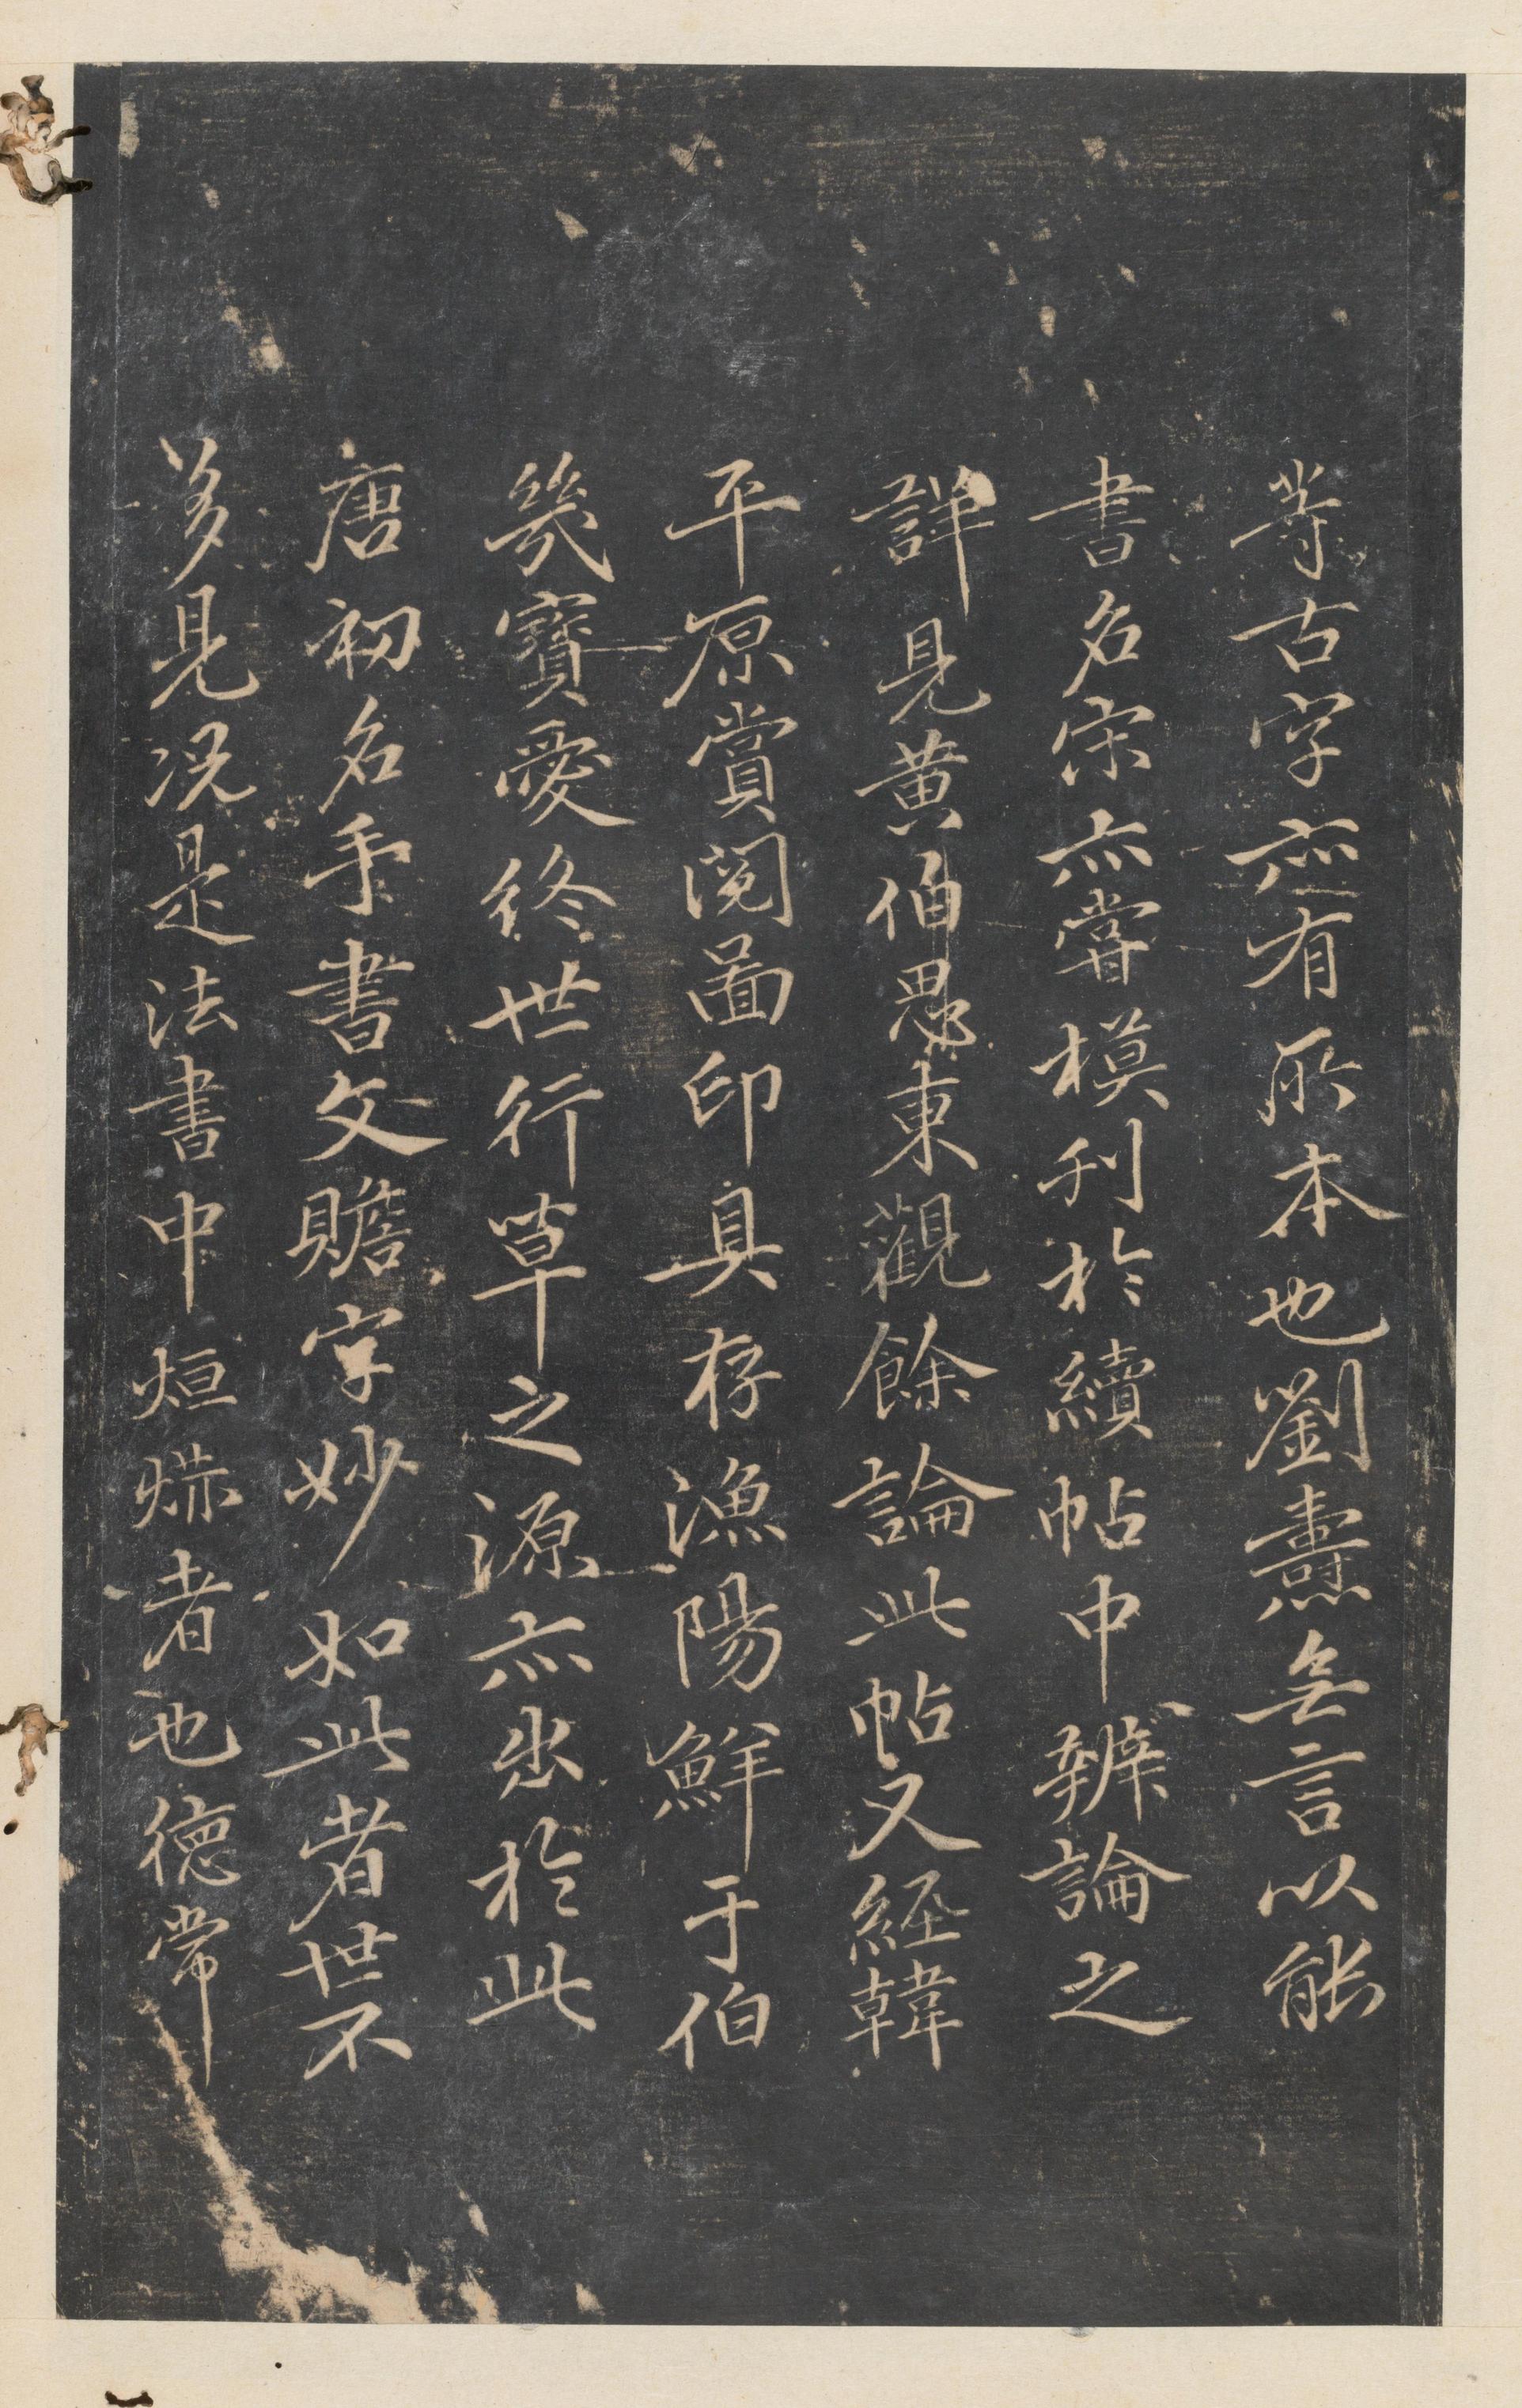 等古字亦有所本也劉燾無言以能
書名宋亦嘗模刊於續帖中辨論之
詳見黃伯思東觀餘論此帖又經韓
平原賞閱圖印具存漁陽鮮于伯
幾寶愛終世行草之源亦出於此
唐初名手書文贍字妙如此者世不
多見況是法書中烜爀者也德常